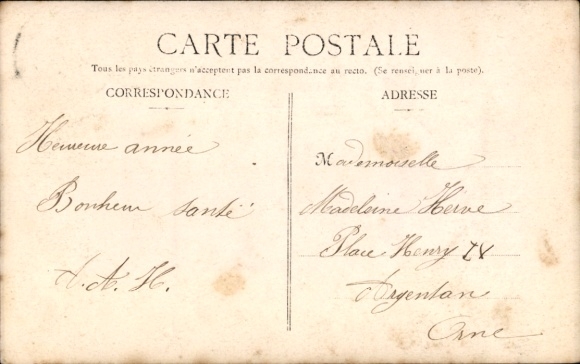 CARTE POSTALE
Tous les pays étrangers n'acceptent pas la correspondance au recto. (Se renseigner à la poste).
CORRESPONDANCE
ADRESSE
Heureuse année
Bonheur santé
A. H.
Mademoiselle
Madeleine Herve
Place Henry IV
Argentan
Orne